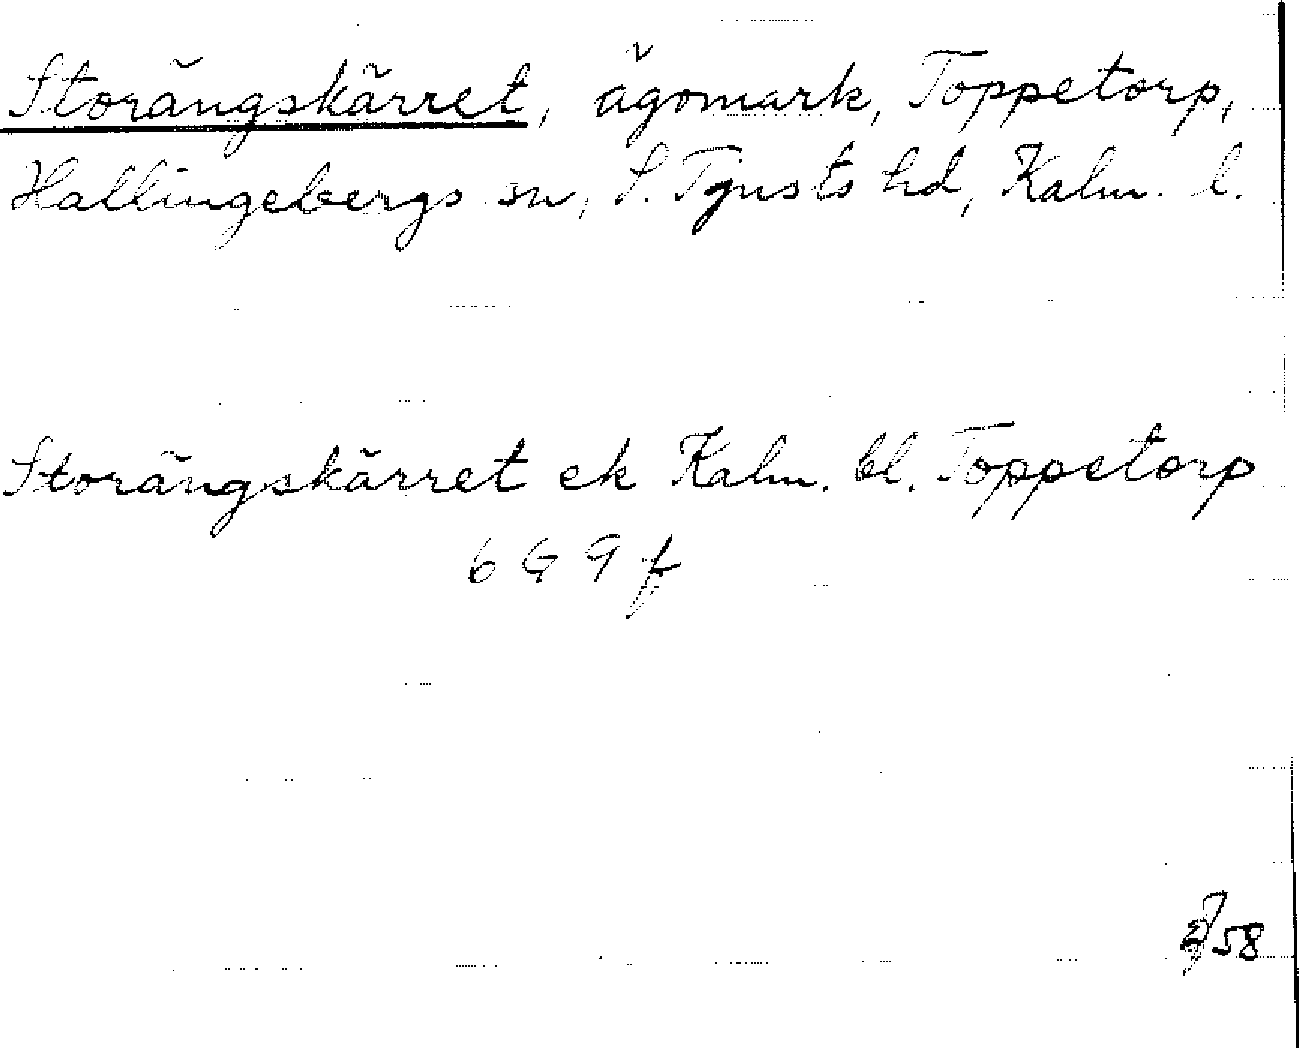 Storängskärret, ägomark, Toppetorp,
Hallingebergs sn, S. Tjusts hd, Kalm. l.
Storängskärret ek Kalm. bl. Toppetorp
6 G 9 f
58